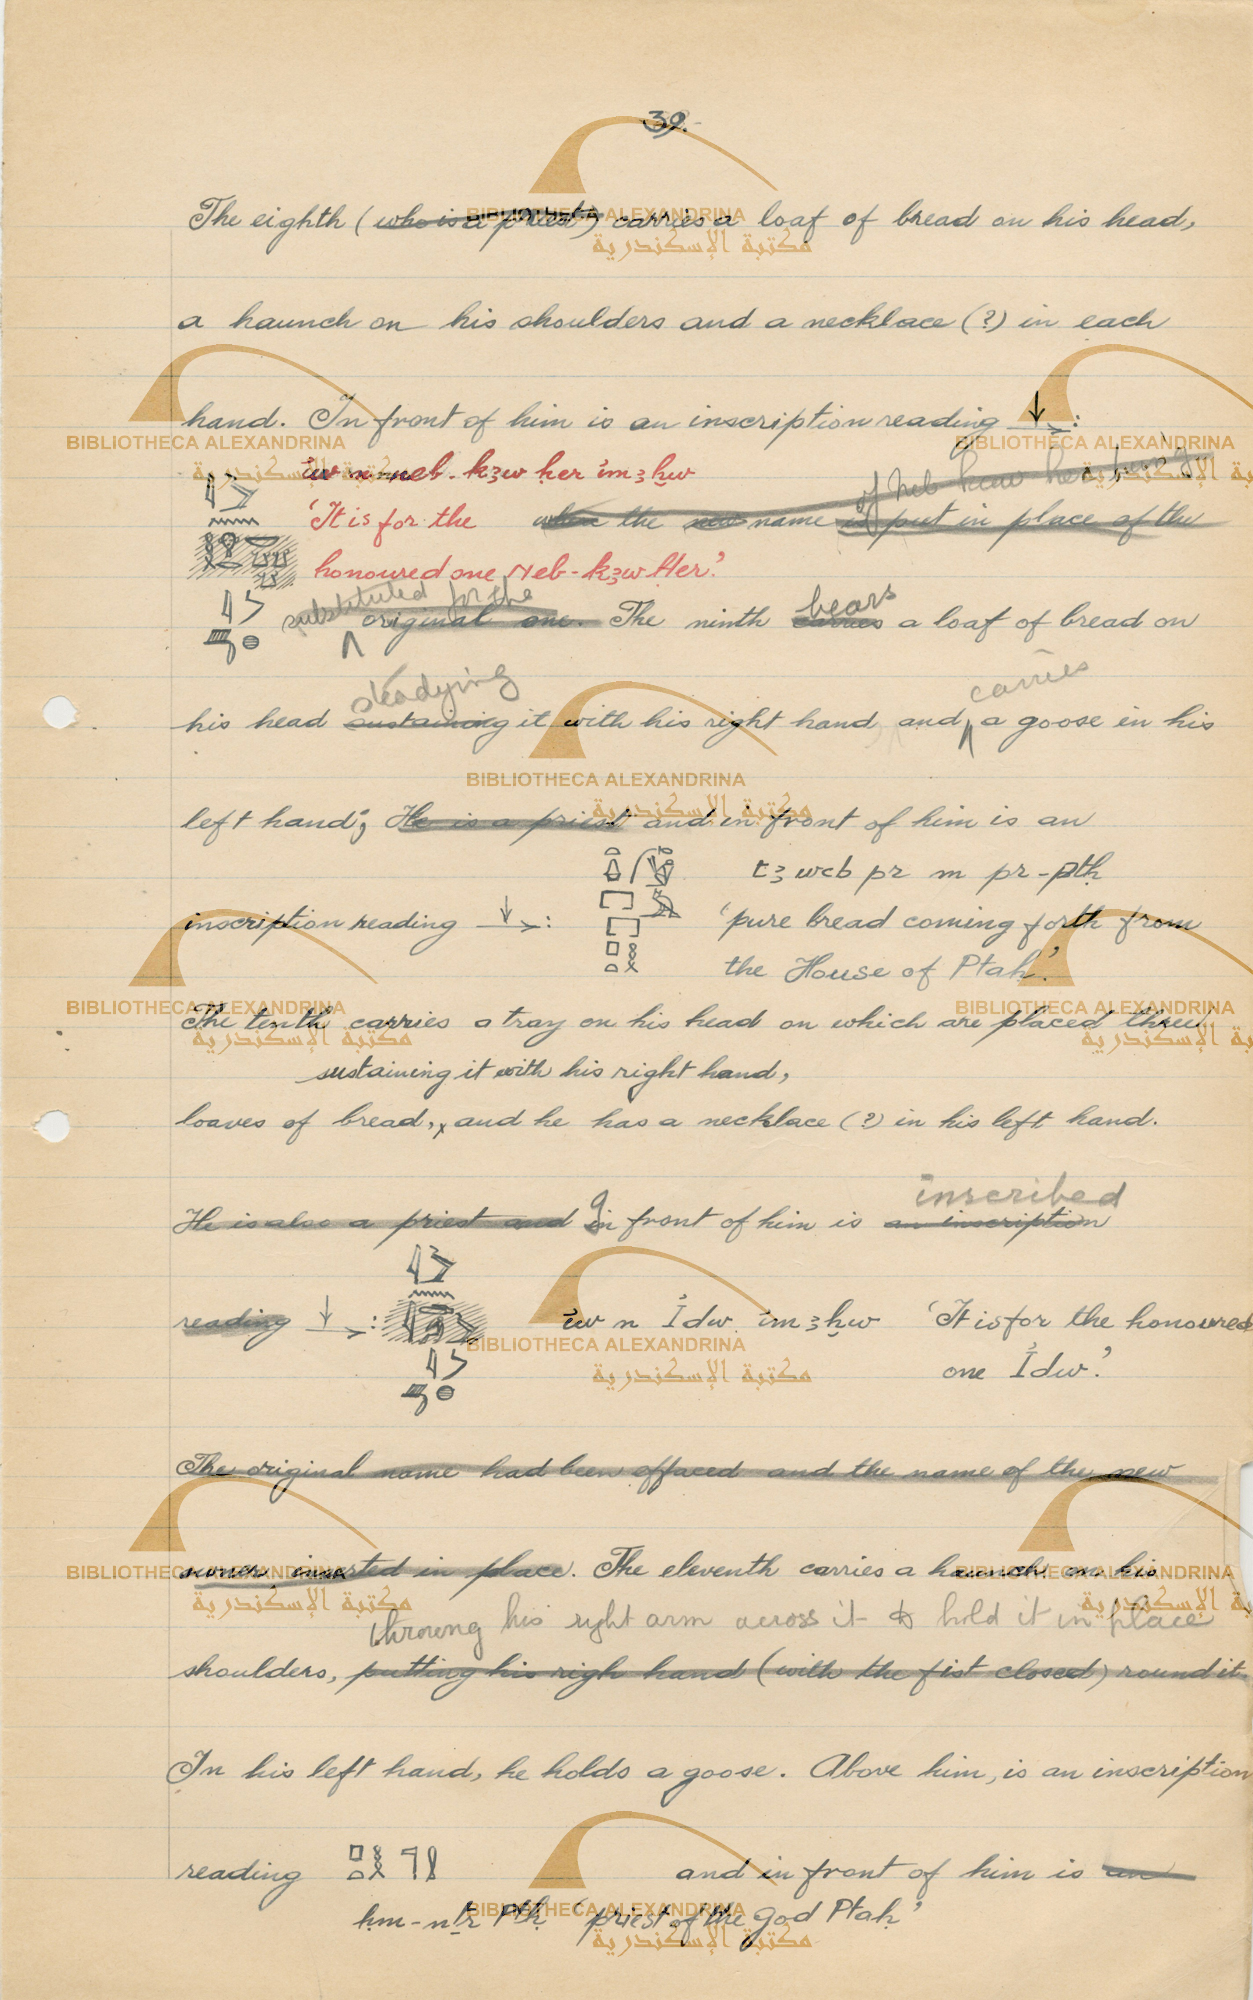 39.
The eighth (who is a priest) carries a loaf of bread on his head,
a haunch on his shoulders and a necklace (?) in each
hand. In front of him is an inscription reading ↓→:
ỉw n neb-kꜣw ḥer ỉmꜣḫw
of Neb kaw her
'It is for the when the new name is put in place of the
honoured one Neb-kꜣw Ḥer.'
substituted for the
original one. The ninth carries a loaf of bread on
bears
steadying
carries
his head sustaining it with his right hand and a goose in his
left hand; He is a priest and in front of him is an
tꜣ wcb pr m pr-ptḥ
inscription reading ↓→: 'pure bread coming forth from
the House of Ptaḥ.'
The tenth carries a tray on his head on which are placed three
sustaining it with his right hand,
loaves of bread, and he has a necklace (?) in his left hand.
inscribed
He is also a priest and In front of him is an inscription
reading ↓→: ỉw n Ỉdw ỉmꜣḫw 'It is for the honoured
one Ỉdw.'
The original name had been effaced and the name of the new
owner inserted in place. The eleventh carries a haunch on his
throwing his right arm across it to hold it in place
shoulders, putting his righ hand (with the fist closed) round it
In his left hand, he holds a goose. Above him, is an inscription
reading and in front of him is an
ḥm-nṯr Ptḥ 'priest of the god Ptaḥ'
BIBLIOTHECA ALEXANDRINA
مكتبة الإسكندرية